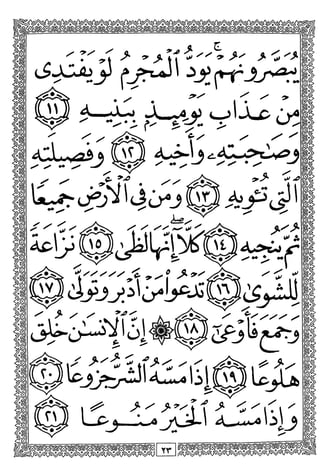 يُبَصَّرُونَهُمۡۚ يَوَدُّ ٱلۡمُجۡرِمُ لَوۡ يَفۡتَدِي
مِنۡ عَذَابِ يَوۡمِئِذِۭ بِبَنِيهِ ١١
وَصَٰحِبَتِهِۦ وَأَخِيهِ ١٢ وَفَصِيلَتِهِ
ٱلَّتِي تُـٔۡوِيهِ ١٣ وَمَن فِي ٱلۡأَرۡضِ جَمِيعٗا
ثُمَّ يُنجِيهِ ١٤ كَلَّآۖ إِنَّهَا لَظَىٰ ١٥ نَزَّاعَةٗ
لِّلشَّوَىٰ ١٦ تَدۡعُواْ مَنۡ أَدۡبَرَ وَتَوَلَّىٰ ١٧
وَجَمَعَ فَأَوۡعَىٰٓ ١٨ ۞ إِنَّ ٱلۡإِنسَٰنَ خُلِقَ
هَلُوعًا ١٩ إِذَا مَسَّهُ ٱلشَّرُّ جَزُوعٗا ٢٠
وَإِذَا مَسَّهُ ٱلۡخَيۡرُ مَنُوعًا ٢١
٢٣